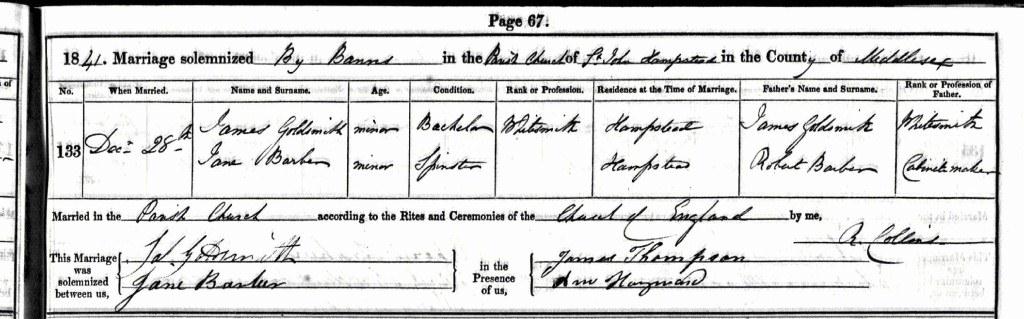 Page 67.
1841. Marriage solemnized By Banns in the Parish Church of St John Hampstead in the County of Middlesex
No. When Married. Name and Surname. Age. Condition. Rank or Profession. Residence at the Time of Marriage. Father's Name and Surname. Rank or Profession of Father.
133 Decr 28th James Goldsmith minor Bachelor Whitesmith Hampstead James Goldsmith Whitesmith
Jane Barber minor Spinster Hampstead Robert Barber Cabinet maker
Married in the Parish Church according to the Rites and Ceremonies of the Church of England by me,
R. Collins
This Marriage was solemnized between us, Jas. Goldsmith in the Presence of us, James Thompson
Jane Barber Ann Hayward